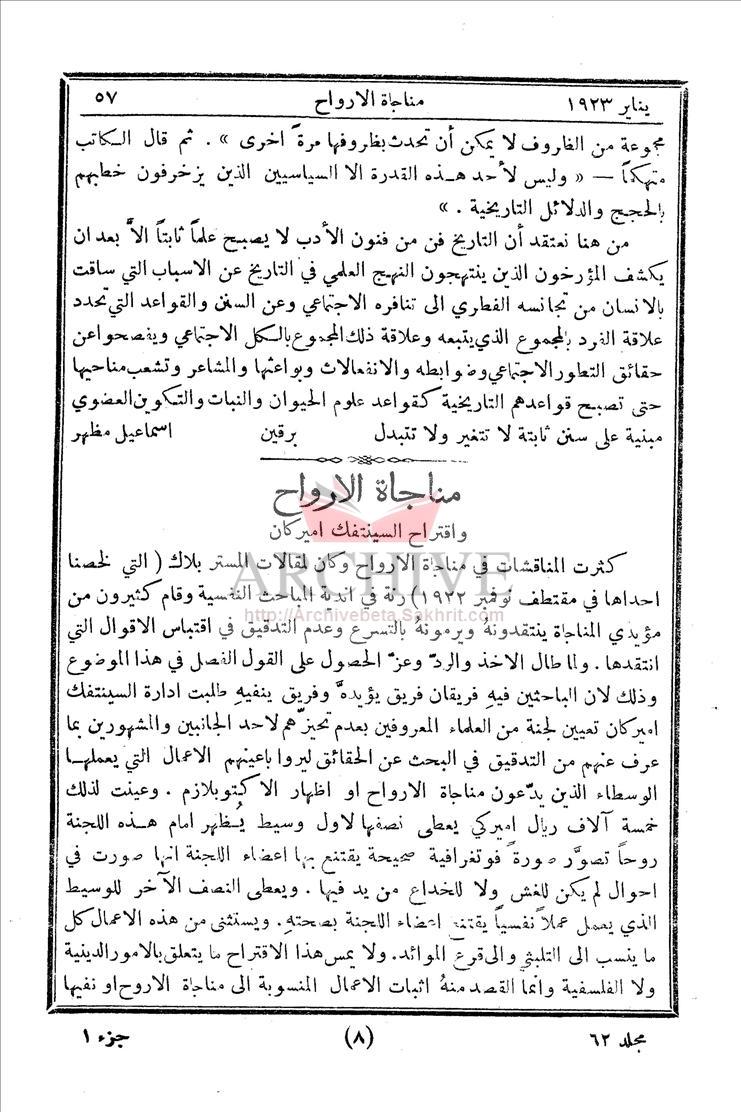 يناير ١٩٢٣ مناجاة الارواح ٥٧
مجموعة من الظروف لا يمكن أن تحدث بظروفها مرةً اخرى » . ثم قال الكاتب
متهكماً — « وليس لأحد هذه القدرة الا السياسيين الذين يزخرفون خطبهم
بالحجج والدلائل التاريخية . »
من هنا نعتقد أن التاريخ فن من فنون الأدب لا يصبح علماً ثابتاً الاَّ بعد ان
يكشف المؤرخون الذين ينتهجون النهج العلمي في التاريخ عن الاسباب التي ساقت
بالانسان من تجانسه الفطري الى تنافره الاجتماعي وعن السنن والقواعد التي تحدد
علاقة الفرد بالمجموع الذي يتبعه وعلاقة ذلك المجموع بالكل الاجتماعي ويفصحوا عن
حقائق التطور الاجتماعي وضوابطه والانفعالات وبواعثها والمشاعر وتشعب مناحيها
حتى تصبح قواعدهم التاريخية كقواعد علوم الحيوان والنبات والتكوين العضوي
مبنية على سنن ثابتة لا تتغير ولا تتبدل برقين اسماعيل مظهر
مناجاة الارواح
واقتراح السينتفك اميركان
كثرت المناقشات في مناجاة الارواح وكان لمقالات المستر بلاك ( التي لخصنا
احداها في مقتطف نوفمبر ١٩٢٢) رنة في اندية المباحث النفسية وقام كثيرون من
مؤيدي المناجاة ينتقدونهُ ويرمونهُ بالتسرع وعدم التدقيق في اقتباس الاقوال التي
انتقدها . ولما طال الاخذ والردّ وعزَّ الحصول على القول الفصل في هذا الموضوع
وذلك لان الباحثين فيهِ فريقان فريق يؤيدهُ وفريق ينفيهِ طلبت ادارة السينتفك
اميركان تعيين لجنة من العلماء المعروفين بعدم تحيزّهم لاحد الجانبين والمشهورين بما
عرف عنهم من التدقيق في البحث عن الحقائق ليروا باعينهم الاعمال التي يعملها
الوسطاء الذين يدّعون مناجاة الارواح او اظهار الاكتوبلازم . وعينت لذلك
خمسة آلاف ريال اميركي يعطى نصفها لاول وسيط يُظهر امام هذه اللجنة
روحاً تصوَّر صورةً فوتغرافية صحيحة يقتنع بها اعضاء اللجنة انها صورت في
احوال لم يكن للغش ولا للخداع من يد فيها . ويعطى النصف الآخر للوسيط
الذي يعمل عملاً نفسياً يقتنع اعضاء اللجنة بصحتهِ . ويستثنى من هذه الاعمال كل
ما ينسب الى التلبثي والى قرع الموائد. ولا يمس هذا الاقتراح ما يتعلق بالامور الدينية
ولا الفلسفية وانما القصد منهُ اثبات الاعمال المنسوبة الى مناجاة الاروح او نفيها
مجلد ٦٢ (٨) جزء ١
ARCHIVE
http://Archivebeta.Sakhrit.com